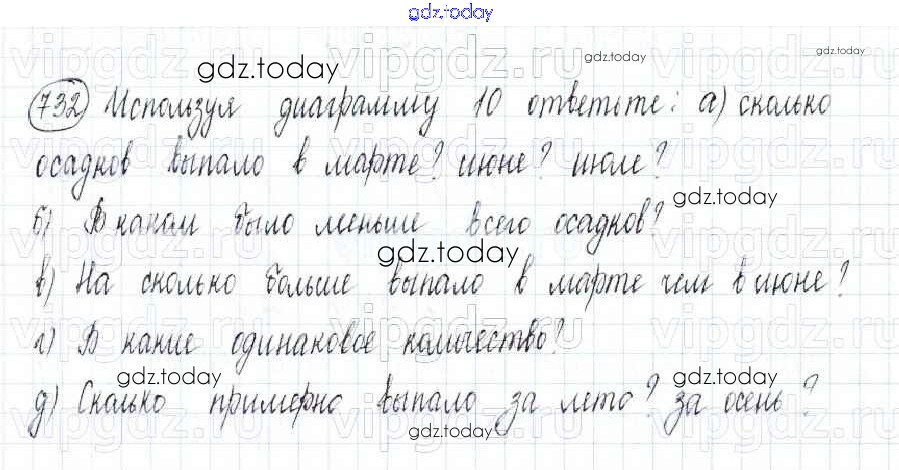 gdz.today
gdz.today
gdz.today
gdz.today
732 Используя диаграмму 10 ответьте: а) сколько
осадков выпало в марте? июне? июле?
gdz.today
б) В каком было меньше всего осадков?
gdz.today
в) На сколько больше выпало в марте чем в июне?
г) В какие одинаковое количество?
gdz.today
gdz.today
д) Сколько примерно выпало за лето? за осень?
gdz.today
vipgdz.ru